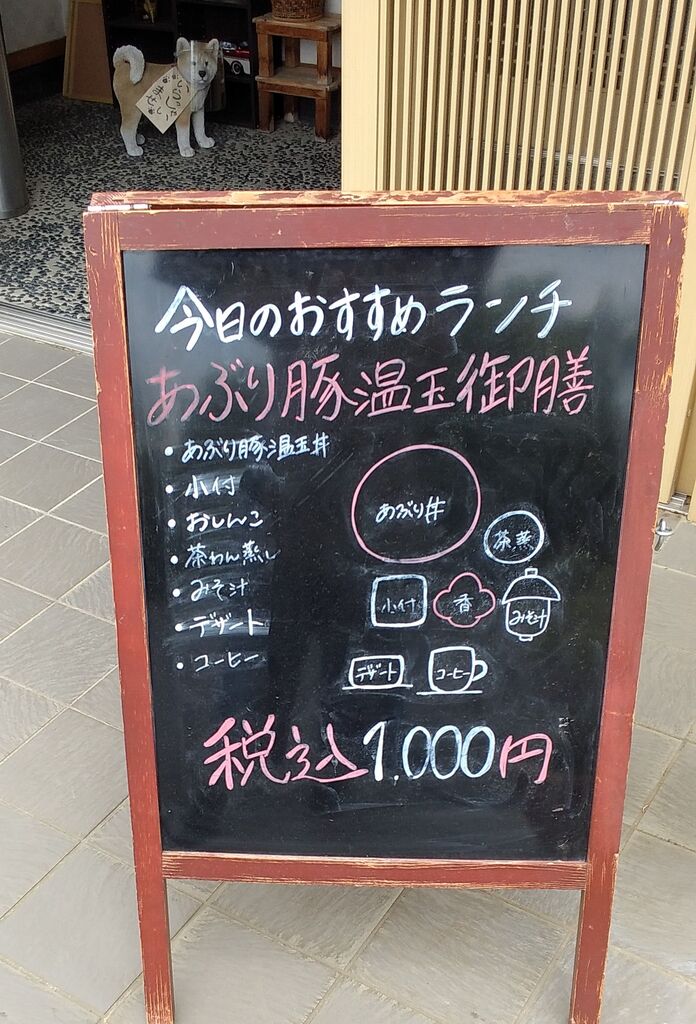 いらっしゃい
ませ
今日のおすすめランチ
あぶり豚温玉御膳
・あぶり豚温玉丼
・小付
・おしんこ
・茶わん蒸し
・みそ汁
・デザート
・コーヒー
あぶり丼
茶蒸
小付
香
みそ汁
デザート
コーヒー
税込1.000円